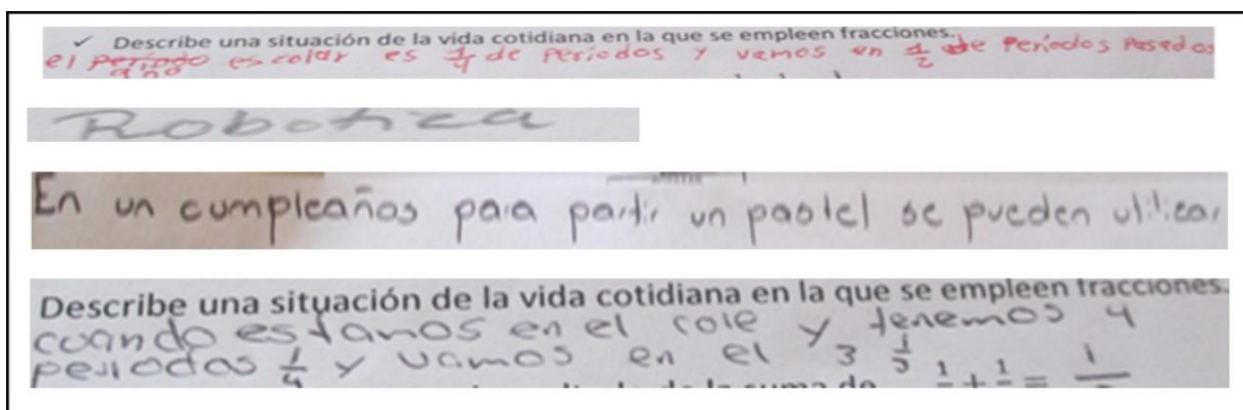 ✓ Describe una situación de la vida cotidiana en la que se empleen fracciones.
el periodo escolar es 1/4 de periodos y vamos en 1/2 de periodos pasados
año
Robotica
En un cumpleaños para partir un pastel se pueden utilizar
Describe una situación de la vida cotidiana en la que se empleen fracciones.
cuando estamos en el cole y tenemos 4
periodos 1/4 y vamos en el 3
1/4 + 1/4 =